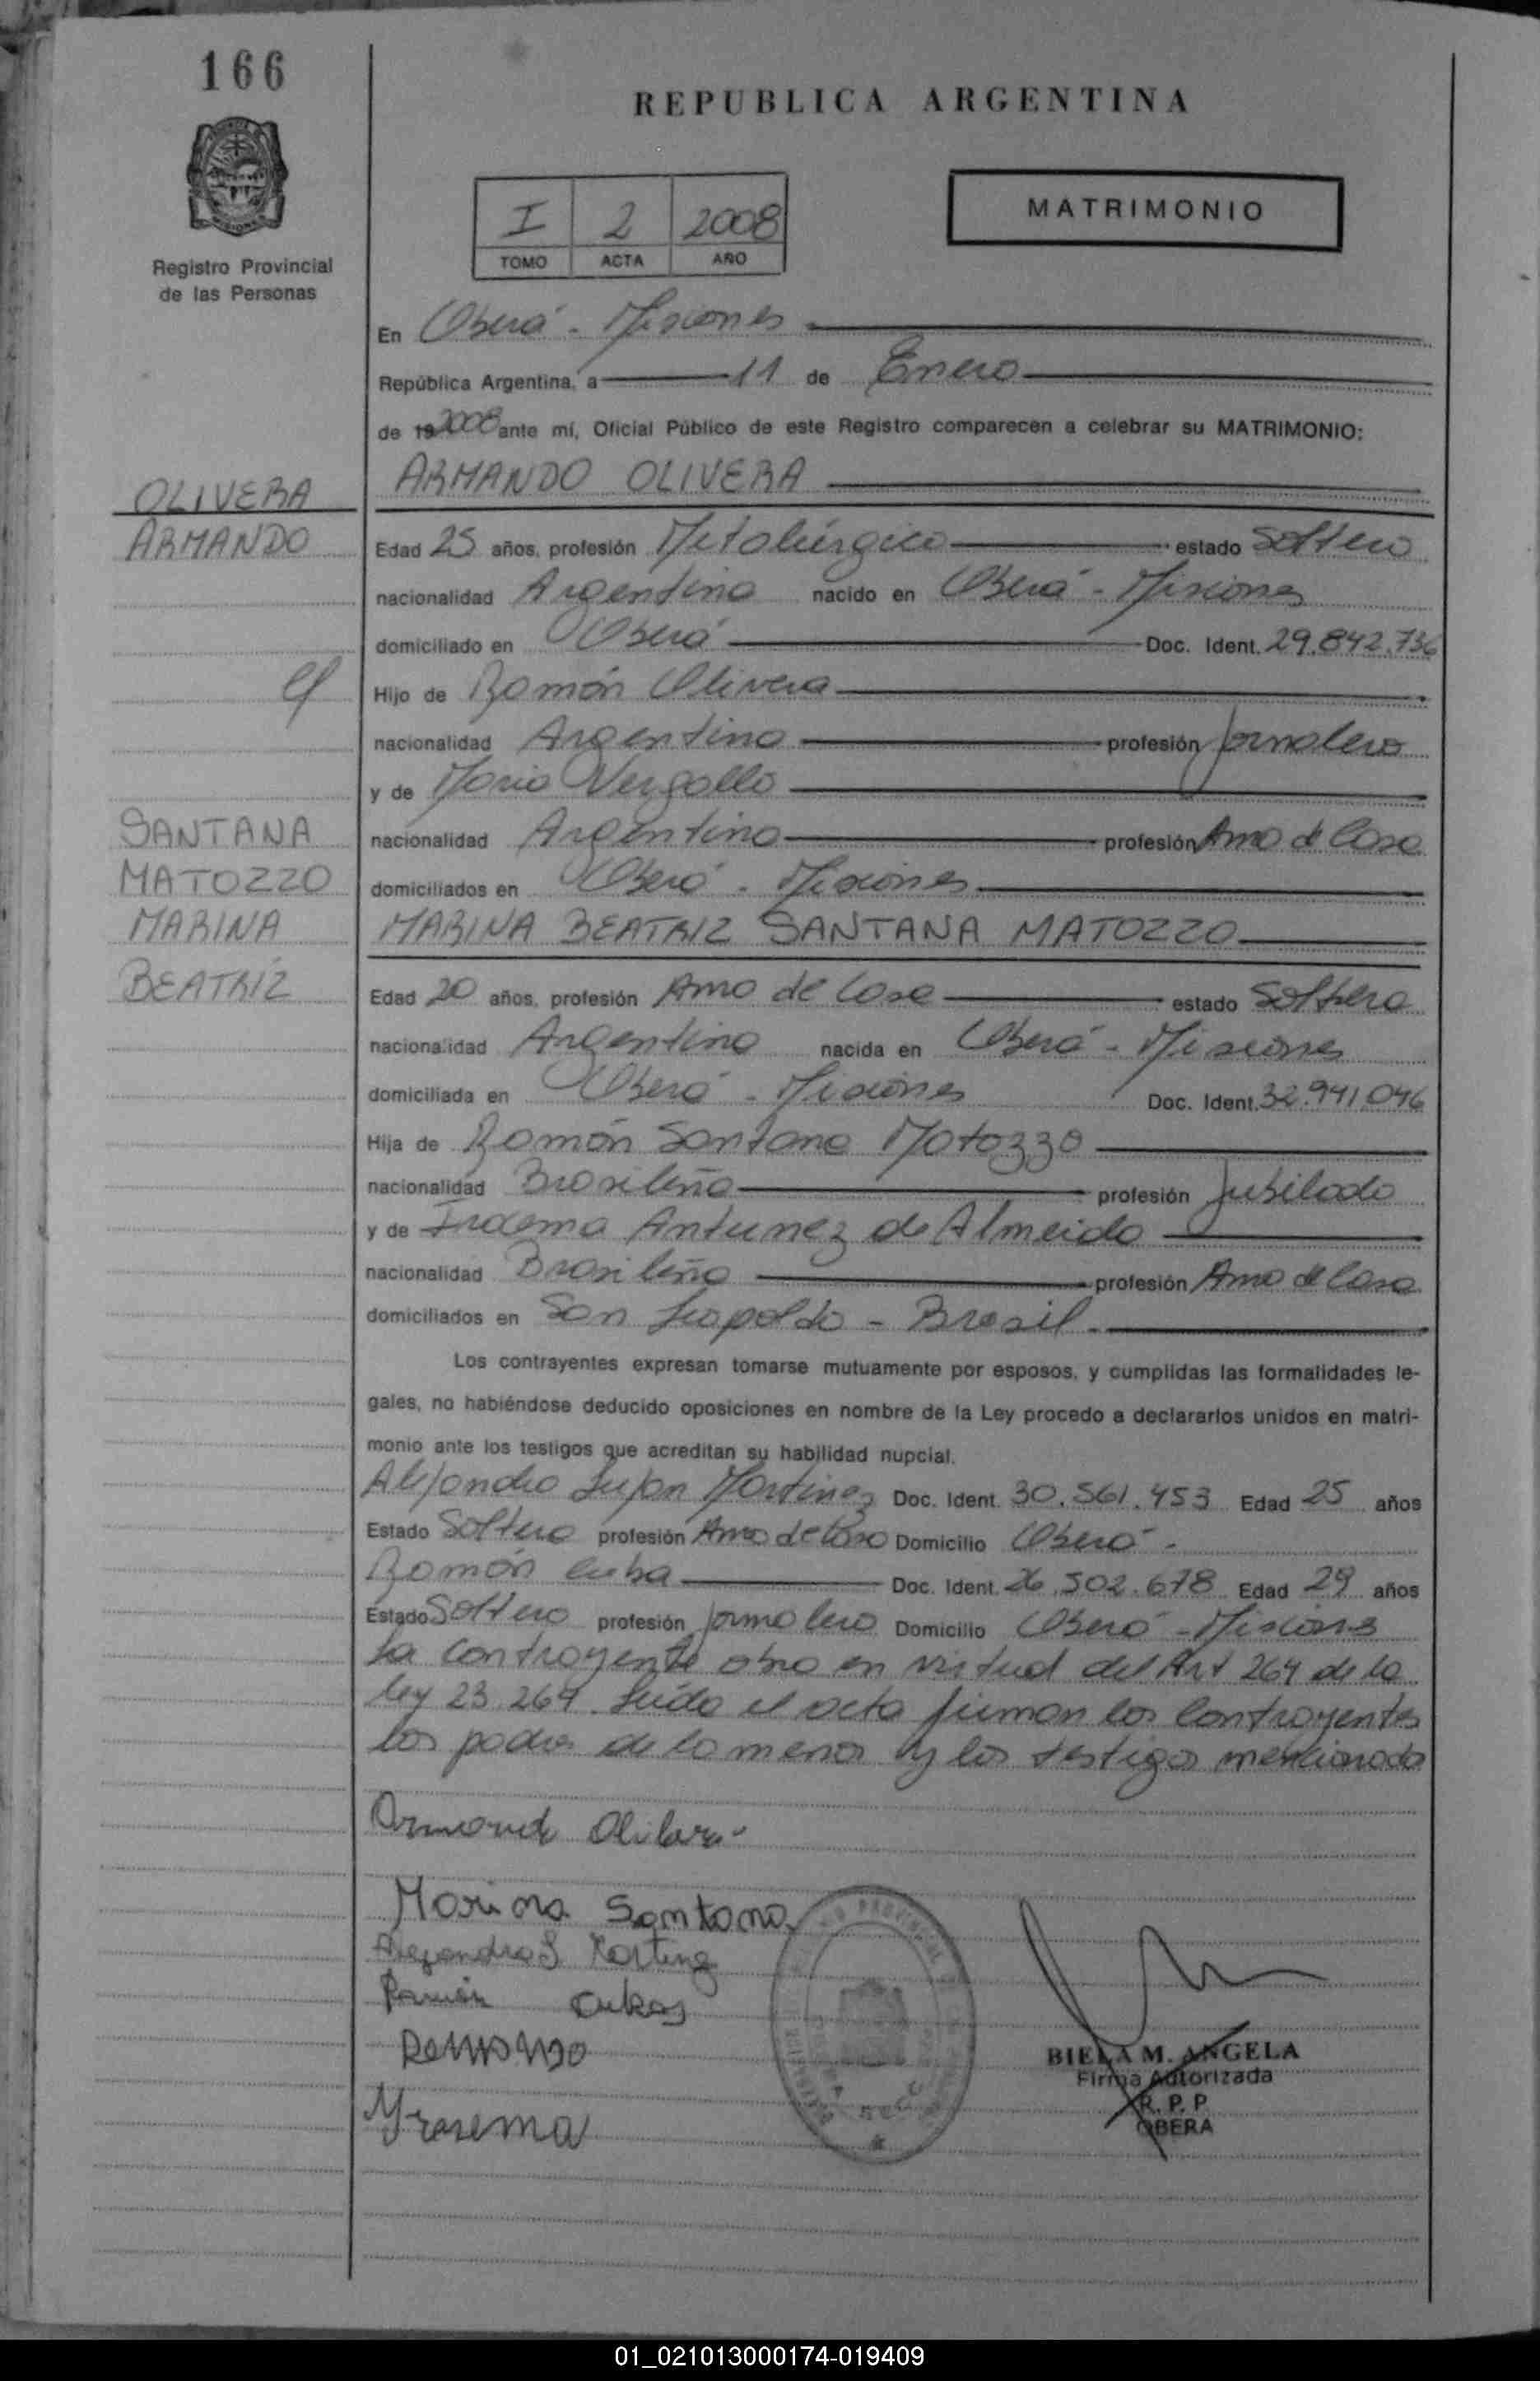 166
REPUBLICA ARGENTINA
I 2 2008
TOMO ACTA AÑO
MATRIMONIO
Registro Provincial
de las Personas
En Oberá - Misiones
República Argentina, a 11 de Enero
de 19 2008 ante mí, Oficial Público de este Registro comparecen a celebrar su MATRIMONIO:
ARMANDO OLIVERA
OLIVERA
ARMANDO
Edad 25 años, profesión Metalúrgico estado Soltero
nacionalidad Argentina nacido en Oberá - Misiones
domiciliado en Oberá Doc. Ident. 29.842.736
Hijo de Ramón Olivera
nacionalidad Argentina profesión Jornalero
y de Maria Vergallo
nacionalidad Argentina profesión Ama de Casa
domiciliados en Oberá - Misiones
SANTANA
MATOZZO
MARINA
BEATRÍZ
MARINA BEATRIZ SANTANA MATOZZO
Edad 20 años, profesión Ama de Casa estado Soltera
nacionalidad Argentina nacida en Oberá - Misiones
domiciliada en Oberá - Misiones Doc. Ident. 32.941.046
Hija de Ramón Santana Matozzo
nacionalidad Brasileña profesión Jubilado
y de Iracema Antunez de Almeida
nacionalidad Brasileña profesión Ama de Casa
domiciliados en San Leopoldo - Brasil.
Los contrayentes expresan tomarse mutuamente por esposos, y cumplidas las formalidades le-
gales, no habiéndose deducido oposiciones en nombre de la Ley procedo a declararlos unidos en matri-
monio ante los testigos que acreditan su habilidad nupcial.
Alejandra Lujan Martinez Doc. Ident. 30.561.453 Edad 25 años
Estado Soltera profesión Ama de Casa Domicilio Oberá -
Ramón Doc. Ident. 26.502.678 Edad 29 años
Estado Soltero profesión Jornalero Domicilio Oberá - Misiones
La contrayente obra en virtud del Art 264 de la
ley 23.264. Leída el acta firman los contrayentes
los padres de la menor y los testigos mencionados
Marina Santana
Alejandra L Martinez
Ramón
Yrasema
BIELA M. ANGELA
Firma Autorizada
R. P. P
OBERA
01_021013000174-019409